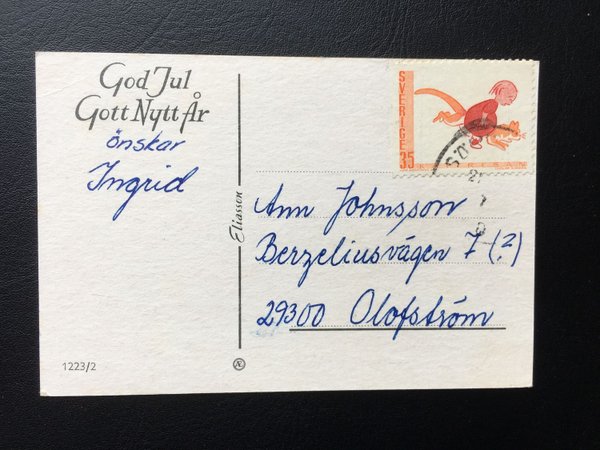 God Jul
Gott Nytt År
önskar
Ingrid
1223/2
Eliasson
SVERIGE 35
Ann Johnsson
Berzeliusvägen 7 (?)
29300 Olofström